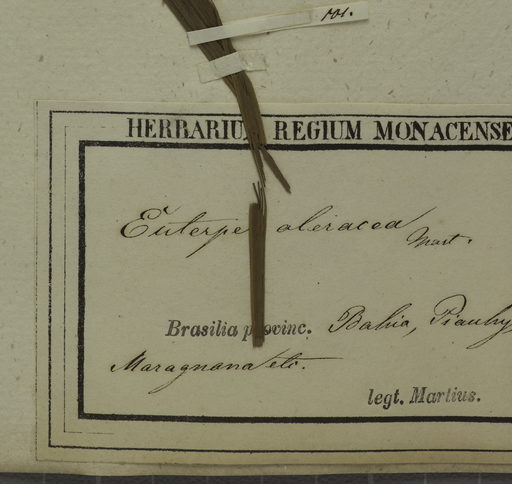 101.
HERBARIUM REGIUM MONACENSE
Euterpe oleracea Mart.
Brasilia provinc. Bahia, Piauhy
Maragnana etc.
legt. Martius.